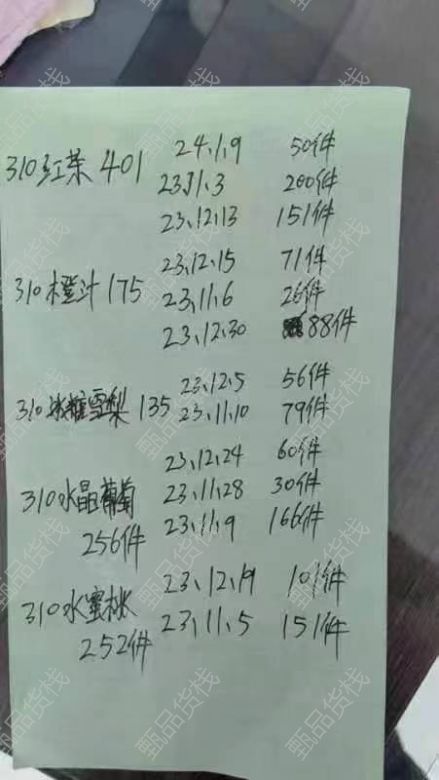 310红茶 401 24、1、9 50件
23、11、3 200件
23、12、13 151件
310橙汁 175 23、12、15 71件
23、11、6 26件
23、12、30 88件
310冰糖雪梨 135 23、12、5 56件
23、11、10 79件
310水晶葡萄 23、12、24 60件
23、11、28 30件
256件 23、11、9 166件
310水蜜桃 23、12、19 101件
252件 23、11、5 151件
甄品货栈